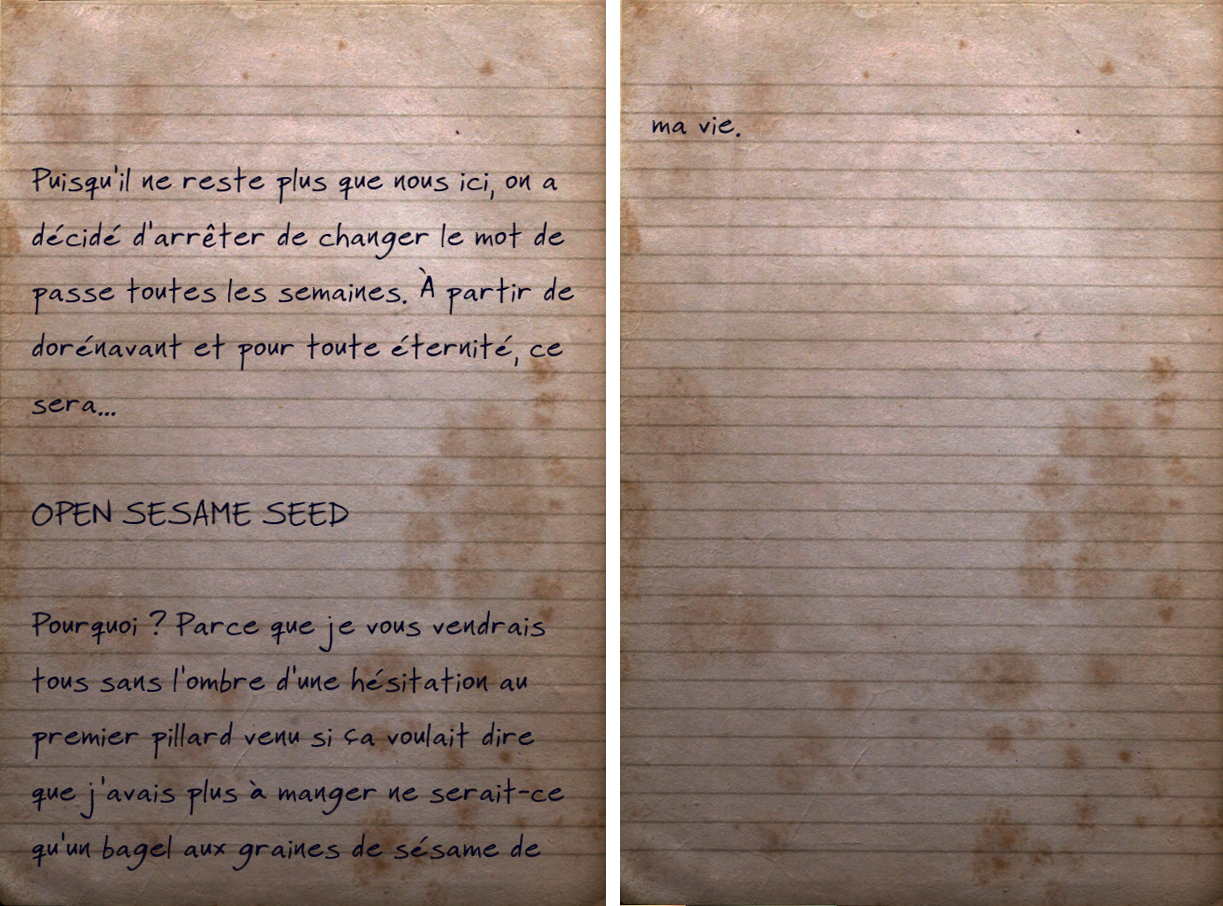 Puisqu'il ne reste plus que nous ici, on a
décidé d'arrêter de changer le mot de
passe toutes les semaines. À partir de
dorénavant et pour toute éternité, ce
sera...
OPEN SESAME SEED
Pourquoi ? Parce que je vous vendrais
tous sans l'ombre d'une hésitation au
premier pillard venu si ça voulait dire
que j'avais plus à manger ne serait-ce
qu'un bagel aux graines de sésame de
ma vie.